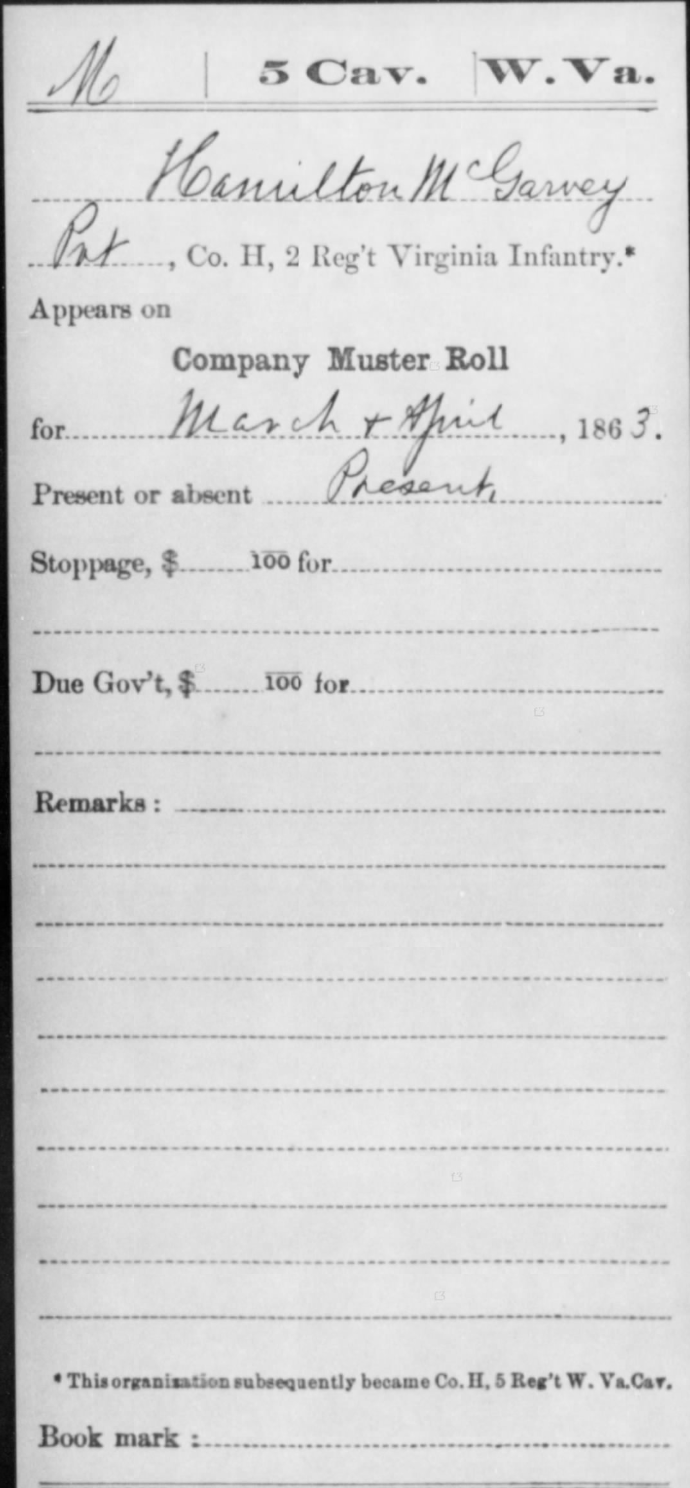 M 5 Cav. W. Va.
Hamilton McGarvey
Pvt, Co. H, 2 Reg't Virginia Infantry.*
Appears on
Company Muster Roll
for March & April, 1863.
Present or absent Present.
Stoppage, $ 100 for
Due Gov't, $ 100 for
Remarks:
* This organization subsequently became Co. H, 5 Reg't W. Va. Cav.
Book mark: